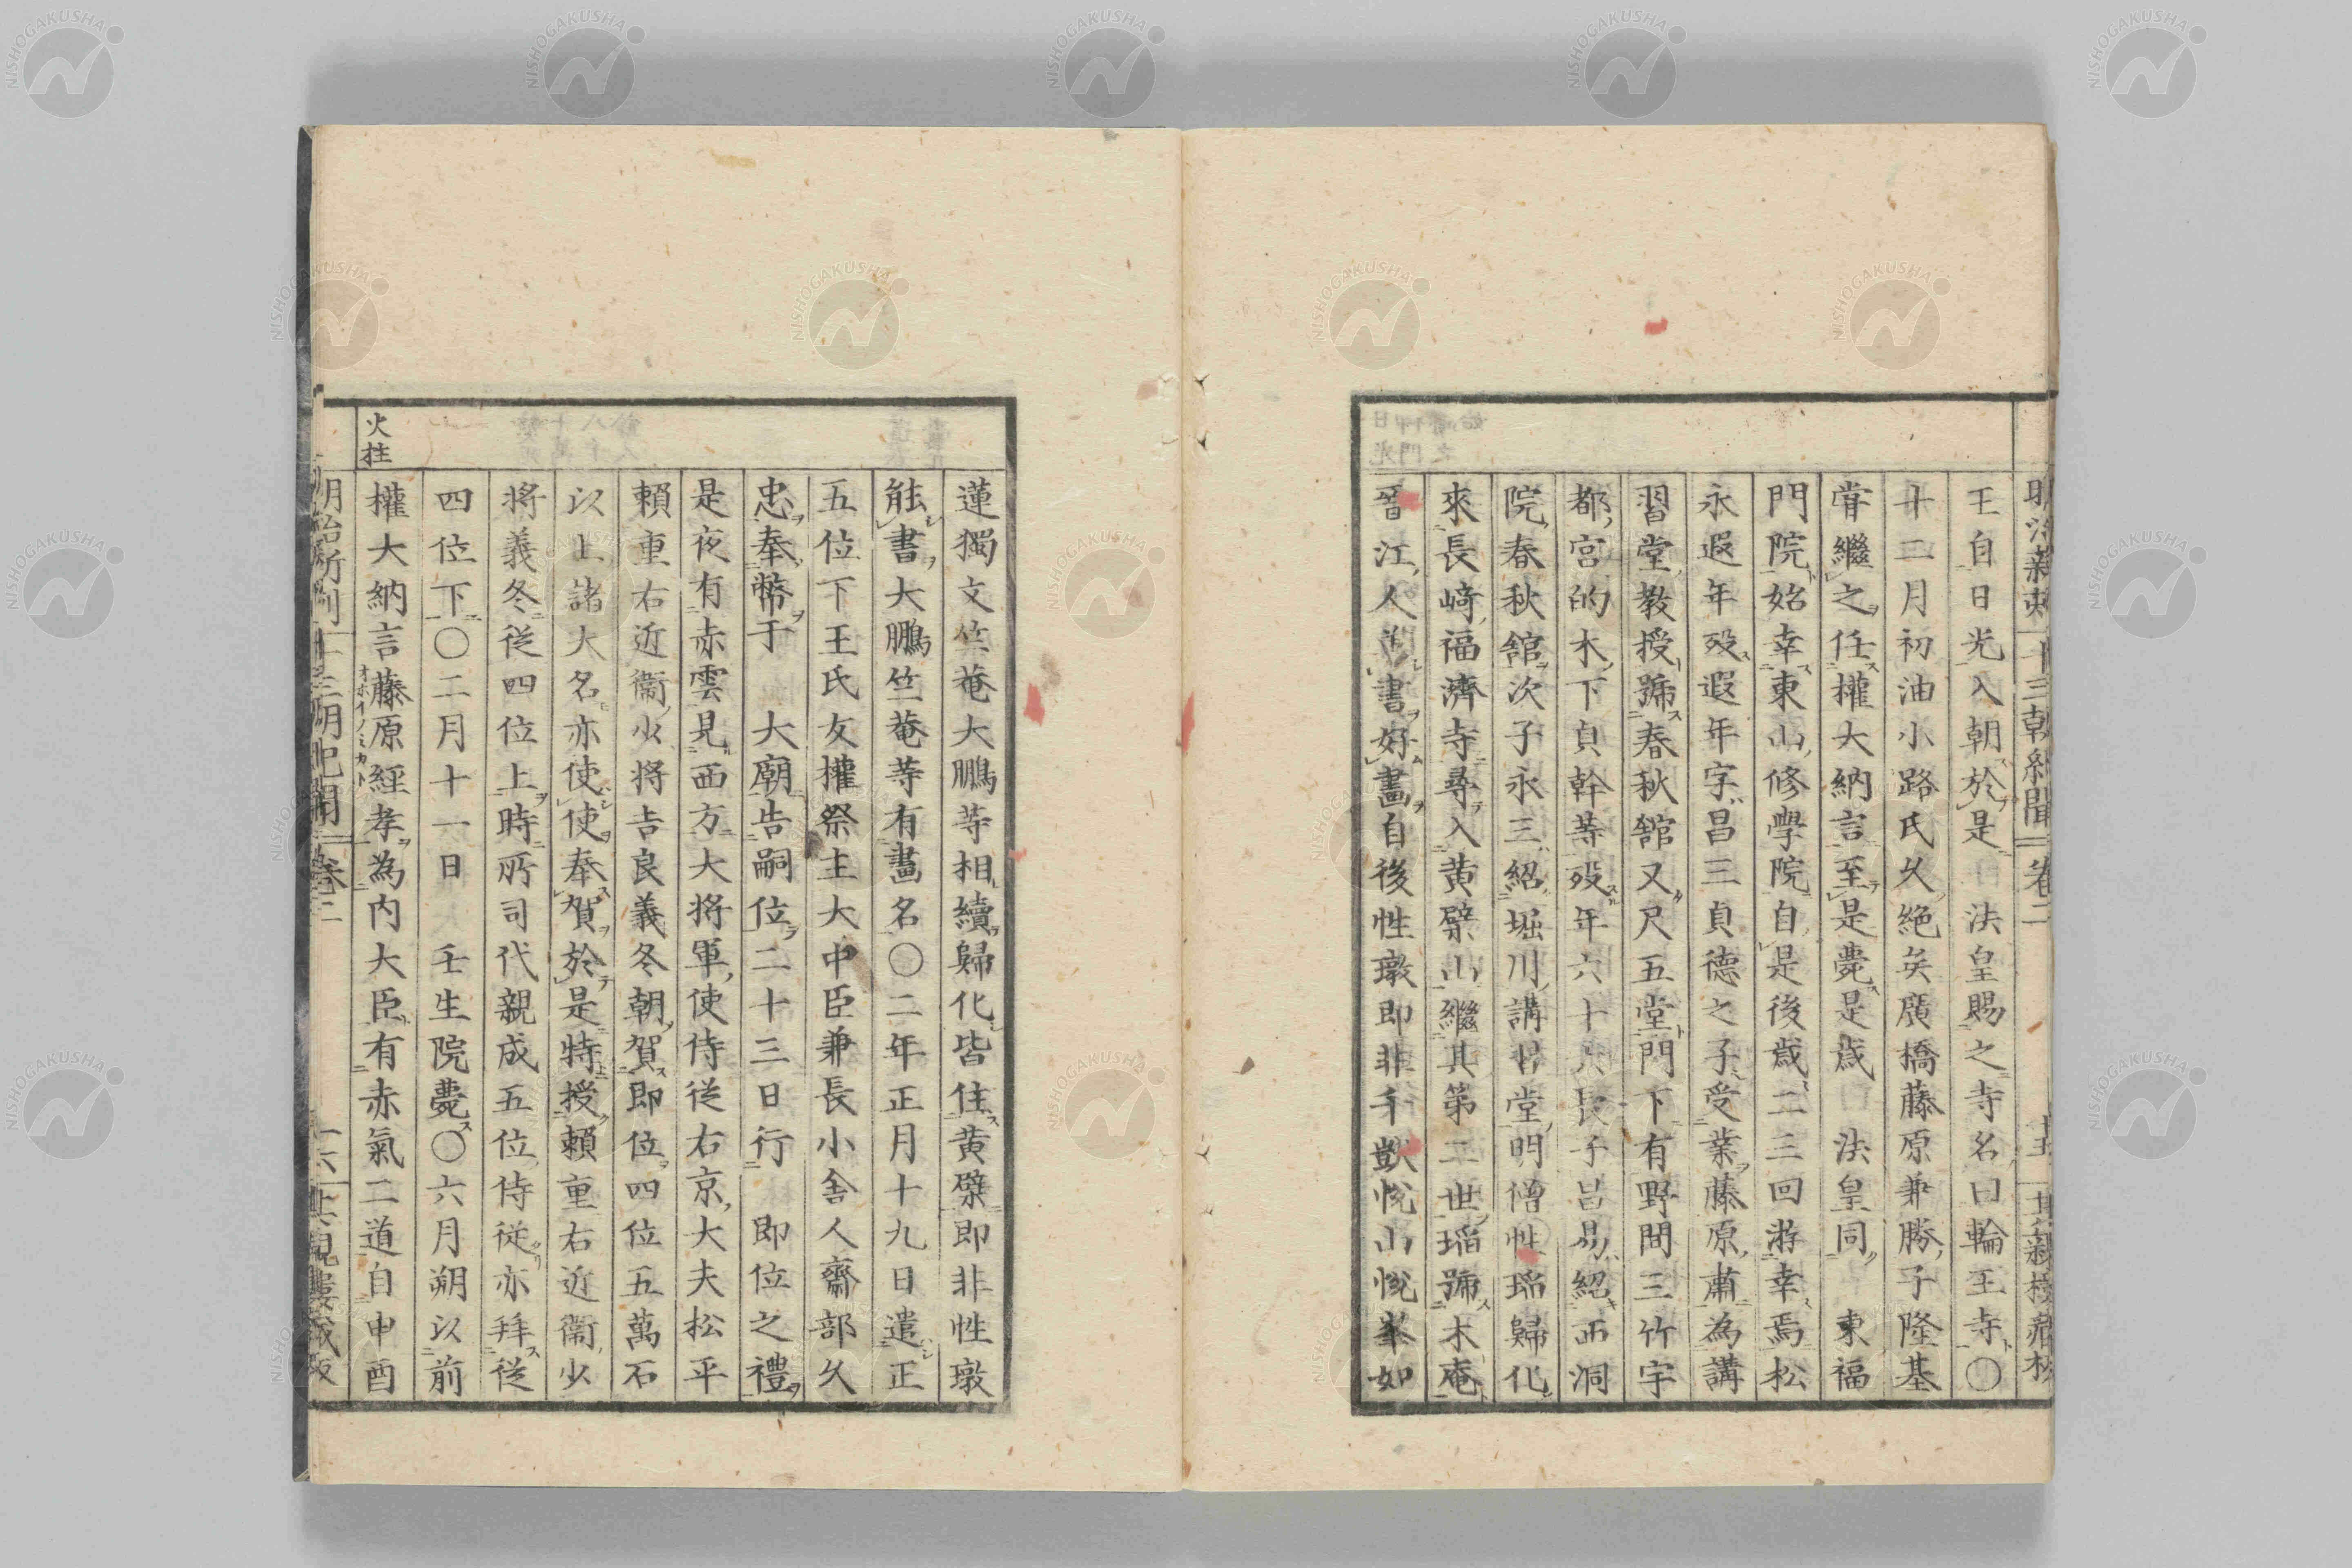 王自日光入朝於是法皇賜之寺名曰輪王寺〇
十二月初油小路氏久絶矣廣橋藤原兼勝子隆基
甞繼之任權大納言至是薨是歳法皇同東福
門院始幸東山修學院自是後歳二三回游幸焉松
永遐年歿遐年字昌三貞德之子受業藤原肅為講
習堂教授號春秋舘又尺五堂門下有野間三竹宇
都宮的木下貞幹等歿年六十長子昌易紹西洞
院春秋舘次子永三紹堀川講習堂明僧性瑫歸化
來長﨑福濟寺尋入黄檗山繼其第二世瑫號木庵
晉江人書好畫自後性璥即非千獃悅山悅峯如
蓮獨文竺菴大鵬等相續歸化皆住黄檗即非性璥
能書大鵬竺菴等有畫名〇二年正月十九日遣正
五位下王氏友權祭主大中臣兼長小舎人齋部久
忠奉幣于大廟告嗣位二十三日行即位之禮
是夜有赤雲見西方大將軍使侍從右京大夫松平
賴重右近衞少將吉良義冬朝賀即位四位五萬石
以上諸大名亦使使奉賀於是特授賴重右近衞少
將義冬從四位上時所司代親成五位侍從亦拜從
四位下〇二月十一日壬生院薨〇六月朔以前
火柱
權大納言藤原經孝為内大臣有赤氣二道自申酉
オホイノミカト
明治新刻 十三朝紀聞 卷二